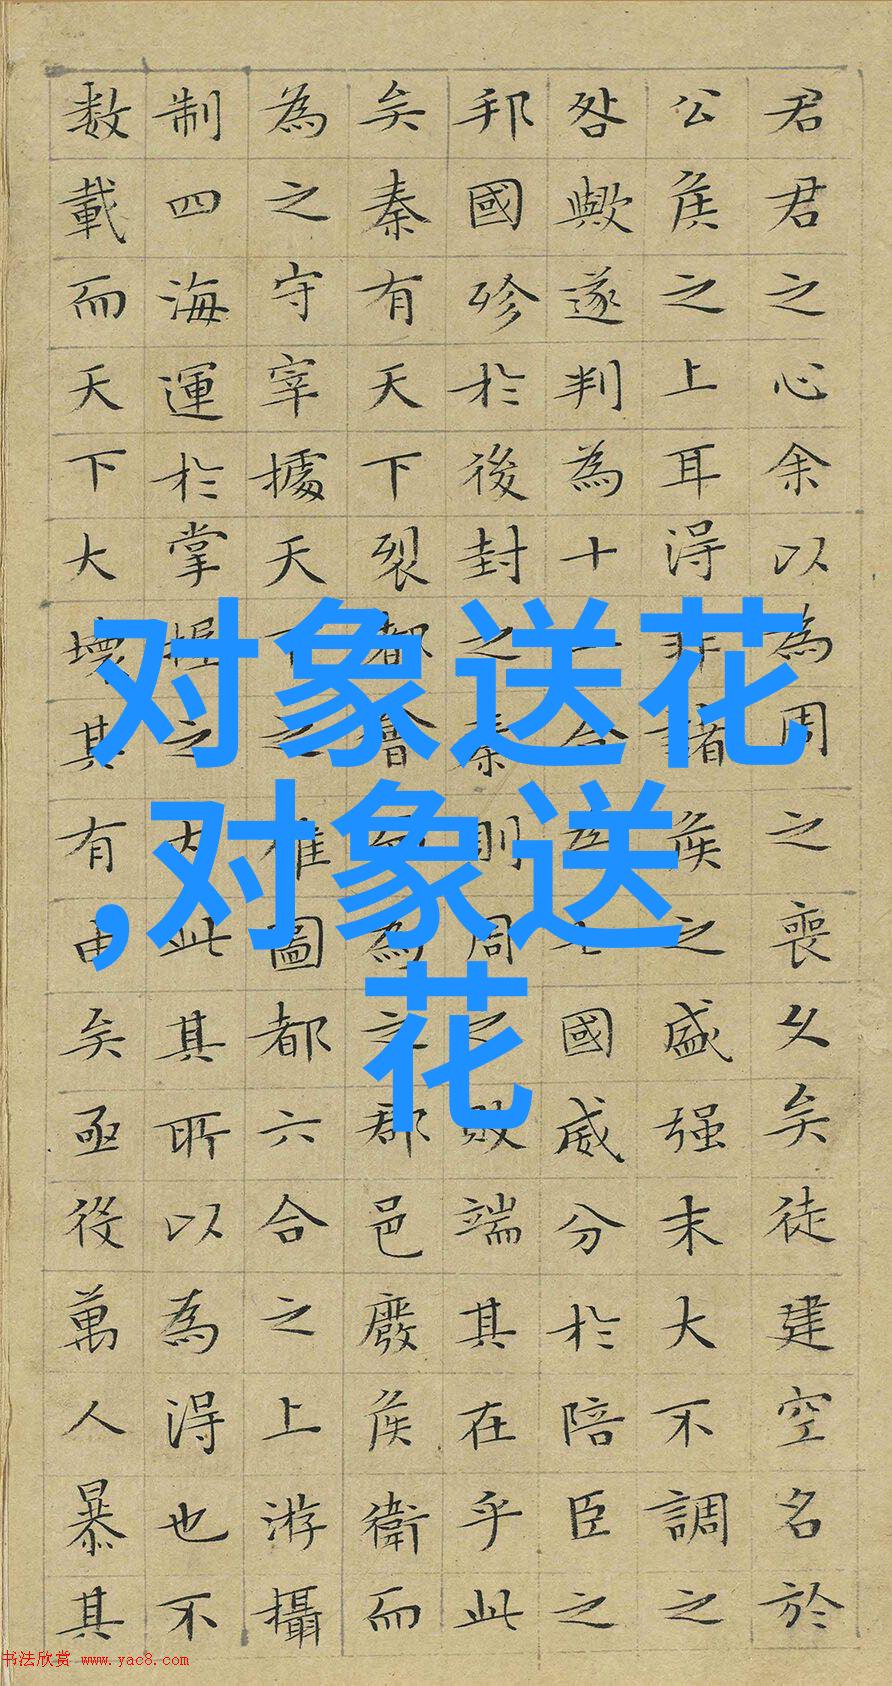 君君之心余以為周之喪久矣徒建空名於
公侯之上耳得非諸侯之盛强末大不調之
咎歟遂判為十二合為七國威分於陪臣之
邦國殄於後封之秦則周之敗端其在乎此
矣秦有天下裂都會而為之郡邑廢侯衛而
為之守宰據天下之雄圖都六合之上游攝
制四海運於掌握之内此其所以為得也不
数載而天下大壞其有由矣亟役萬人暴其
对象送花
,对象送
花
书法欣赏 www.yac8.com